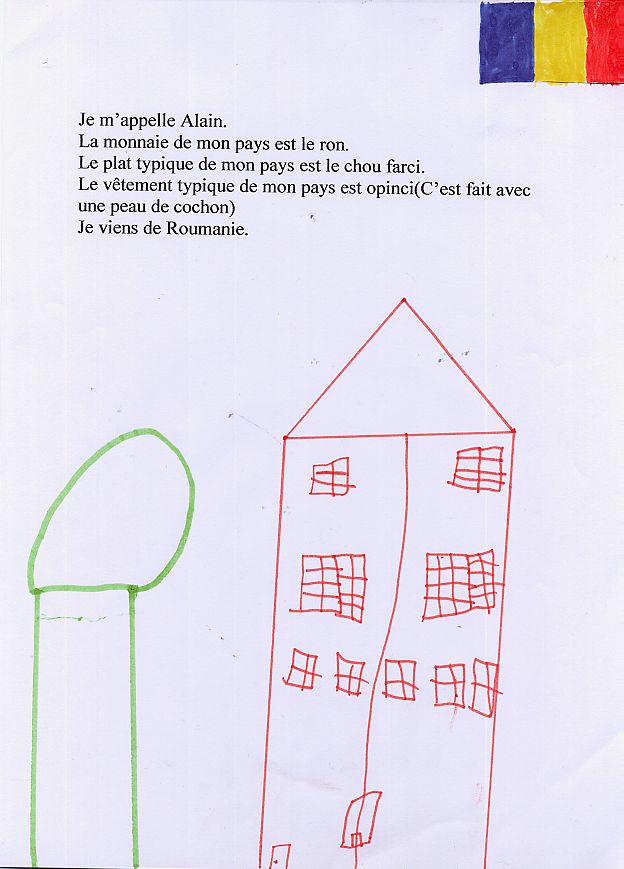 Je m'appelle Alain.
La monnaie de mon pays est le ron.
Le plat typique de mon pays est le chou farci.
Le vêtement typique de mon pays est opinci(C'est fait avec
une peau de cochon)
Je viens de Roumanie.